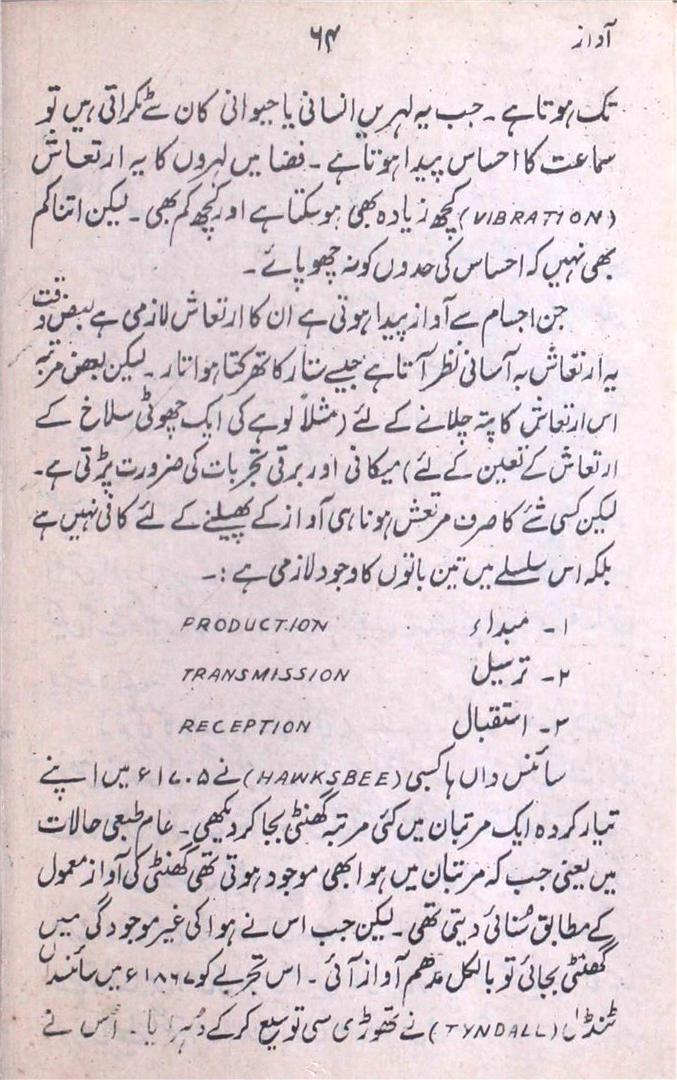 آواز ۶۴
تک ہوتا ہے ۔ جب یہ لہریں انسانی یا حیوانی کان سے ٹکراتی ہیں تو
سماعت کا احساس پیدا ہوتا ہے ۔ فضا میں لہروں کا یہ ارتعاش
(VIBRATION) کچھ زیادہ بھی ہوسکتا ہے اور کچھ کم بھی ۔ لیکن اتنا کم
بھی نہیں کہ احساس کی حدوں کو نہ چھو پائے ۔
جن اجسام سے آواز پیدا ہوتی ہے ان کا ارتعاش لازمی ہے بعض وقت
یہ ارتعاش بہ آسانی نظر آتا ہے جیسے ستار کا تھرکتا ہوا تار ۔ لیکن بعض مرتبہ
اس ارتعاش کا پتہ چلانے کے لئے (مثلاً لوہے کی ایک چھوٹی سلاخ کے
ارتعاش کے تعین کے لئے) میکانی اور برقی تجربات کی ضرورت پڑتی ہے۔
لیکن کسی شئے کا صرف مرتعش ہونا ہی آواز کے پھیلنے کے لئے کافی نہیں ہے
بلکہ اس سلسلے میں تین باتوں کا وجود لازمی ہے :۔
۱۔ مبداء PRODUCTION
۲۔ ترسیل TRANSMISSION
۳۔ استقبال RECEPTION
سائنس داں ہاکسبی (HAWKSBEE) نے ۱۷۰۵ء میں اپنے
تیار کردہ ایک مرتبان میں کئی مرتبہ گھنٹی بجا کر دیکھی ۔ عام طبعی حالات
میں یعنی جب کہ مرتبان میں ہوا بھی موجود ہوتی تھی گھنٹی کی آواز معمول
کے مطابق سُنائی دیتی تھی ۔ لیکن جب اس نے ہوا کی غیر موجودگی میں
گھنٹی بجائی تو بالکل مدھم آواز آئی ۔ اس تجربے کو ۱۸۶۷ء میں سائنسداں
ٹنڈل (TYNDALL) نے تھوڑی سی توسیع کرکے دُہرایا ۔ اس نے